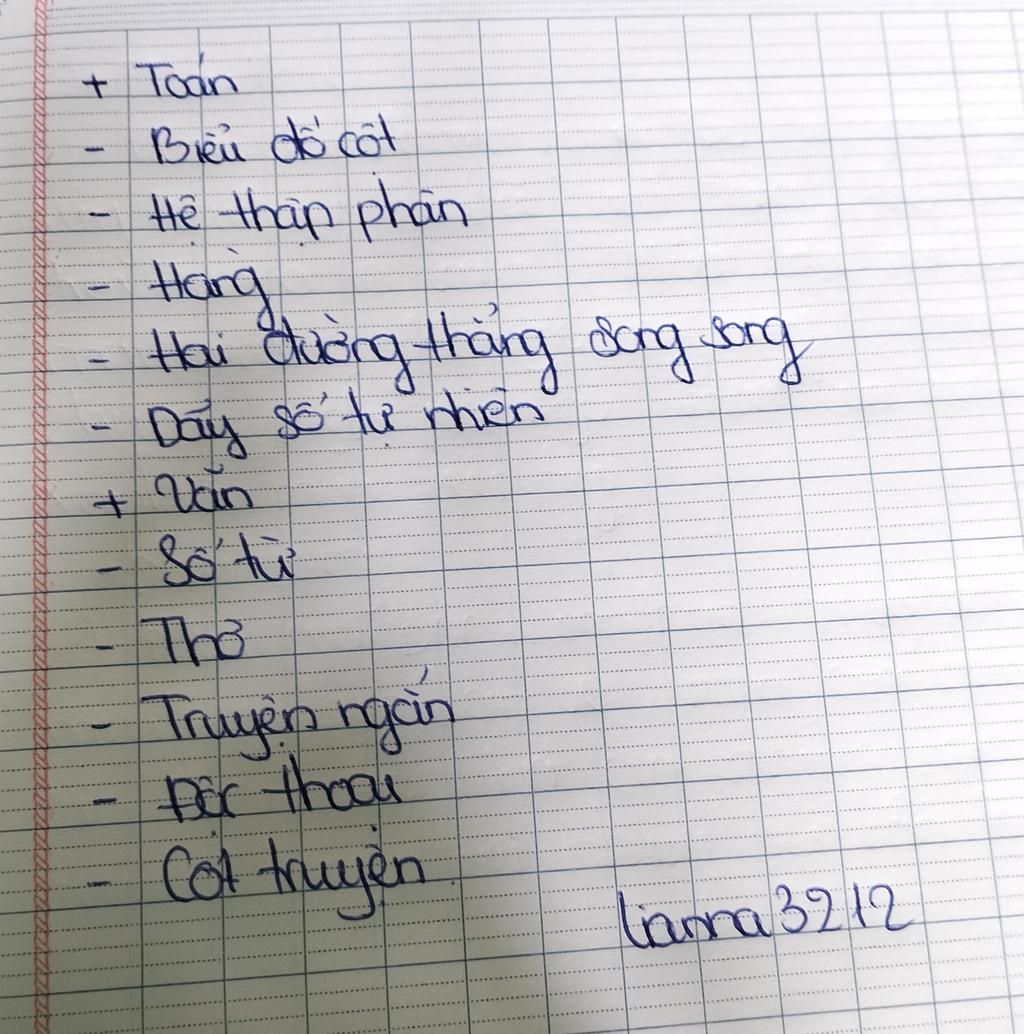 + Toán
- Biểu đồ cột
- Hệ thập phân
- Hàng
- Hai đường thẳng song song
- Dãy số tự nhiên
+ Văn
- Số từ
- Thơ
- Truyện ngắn
- Độc thoại
- Cốt truyện
lianna3212